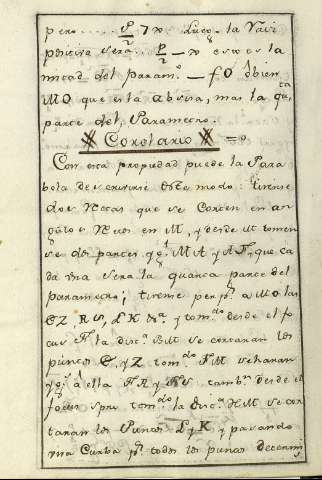 pero .... p/2 7 x Lueg. la
perscisa sera .. p/2 – x esto es la
mitad del param.º — FO
MO que es la absisa, mas la qu.ta
parte del, Parametro.
Corolario = 2
Con esta propiedad puede la Para
bola descrivirse deste modo: tirense
dos rectas que se Corten en an
gulos rectos en M, y desde M tomen
se dos partes yg.s MA y AF, que ca
da una sera la quarta parte del
parametro; tirense perp.s a MO las
CZ, RS, LK &.a y tom.do desde el fo
cus F la dis.a BM se cortaran los
puncos C, y Z tom.do FM se haran
yg.s à ella FR y FS tamb.n desde el
focus F tom.do la dis.a HM se cor
taran los Puncos L y K y pasando
una Curba p.r todos los puncos